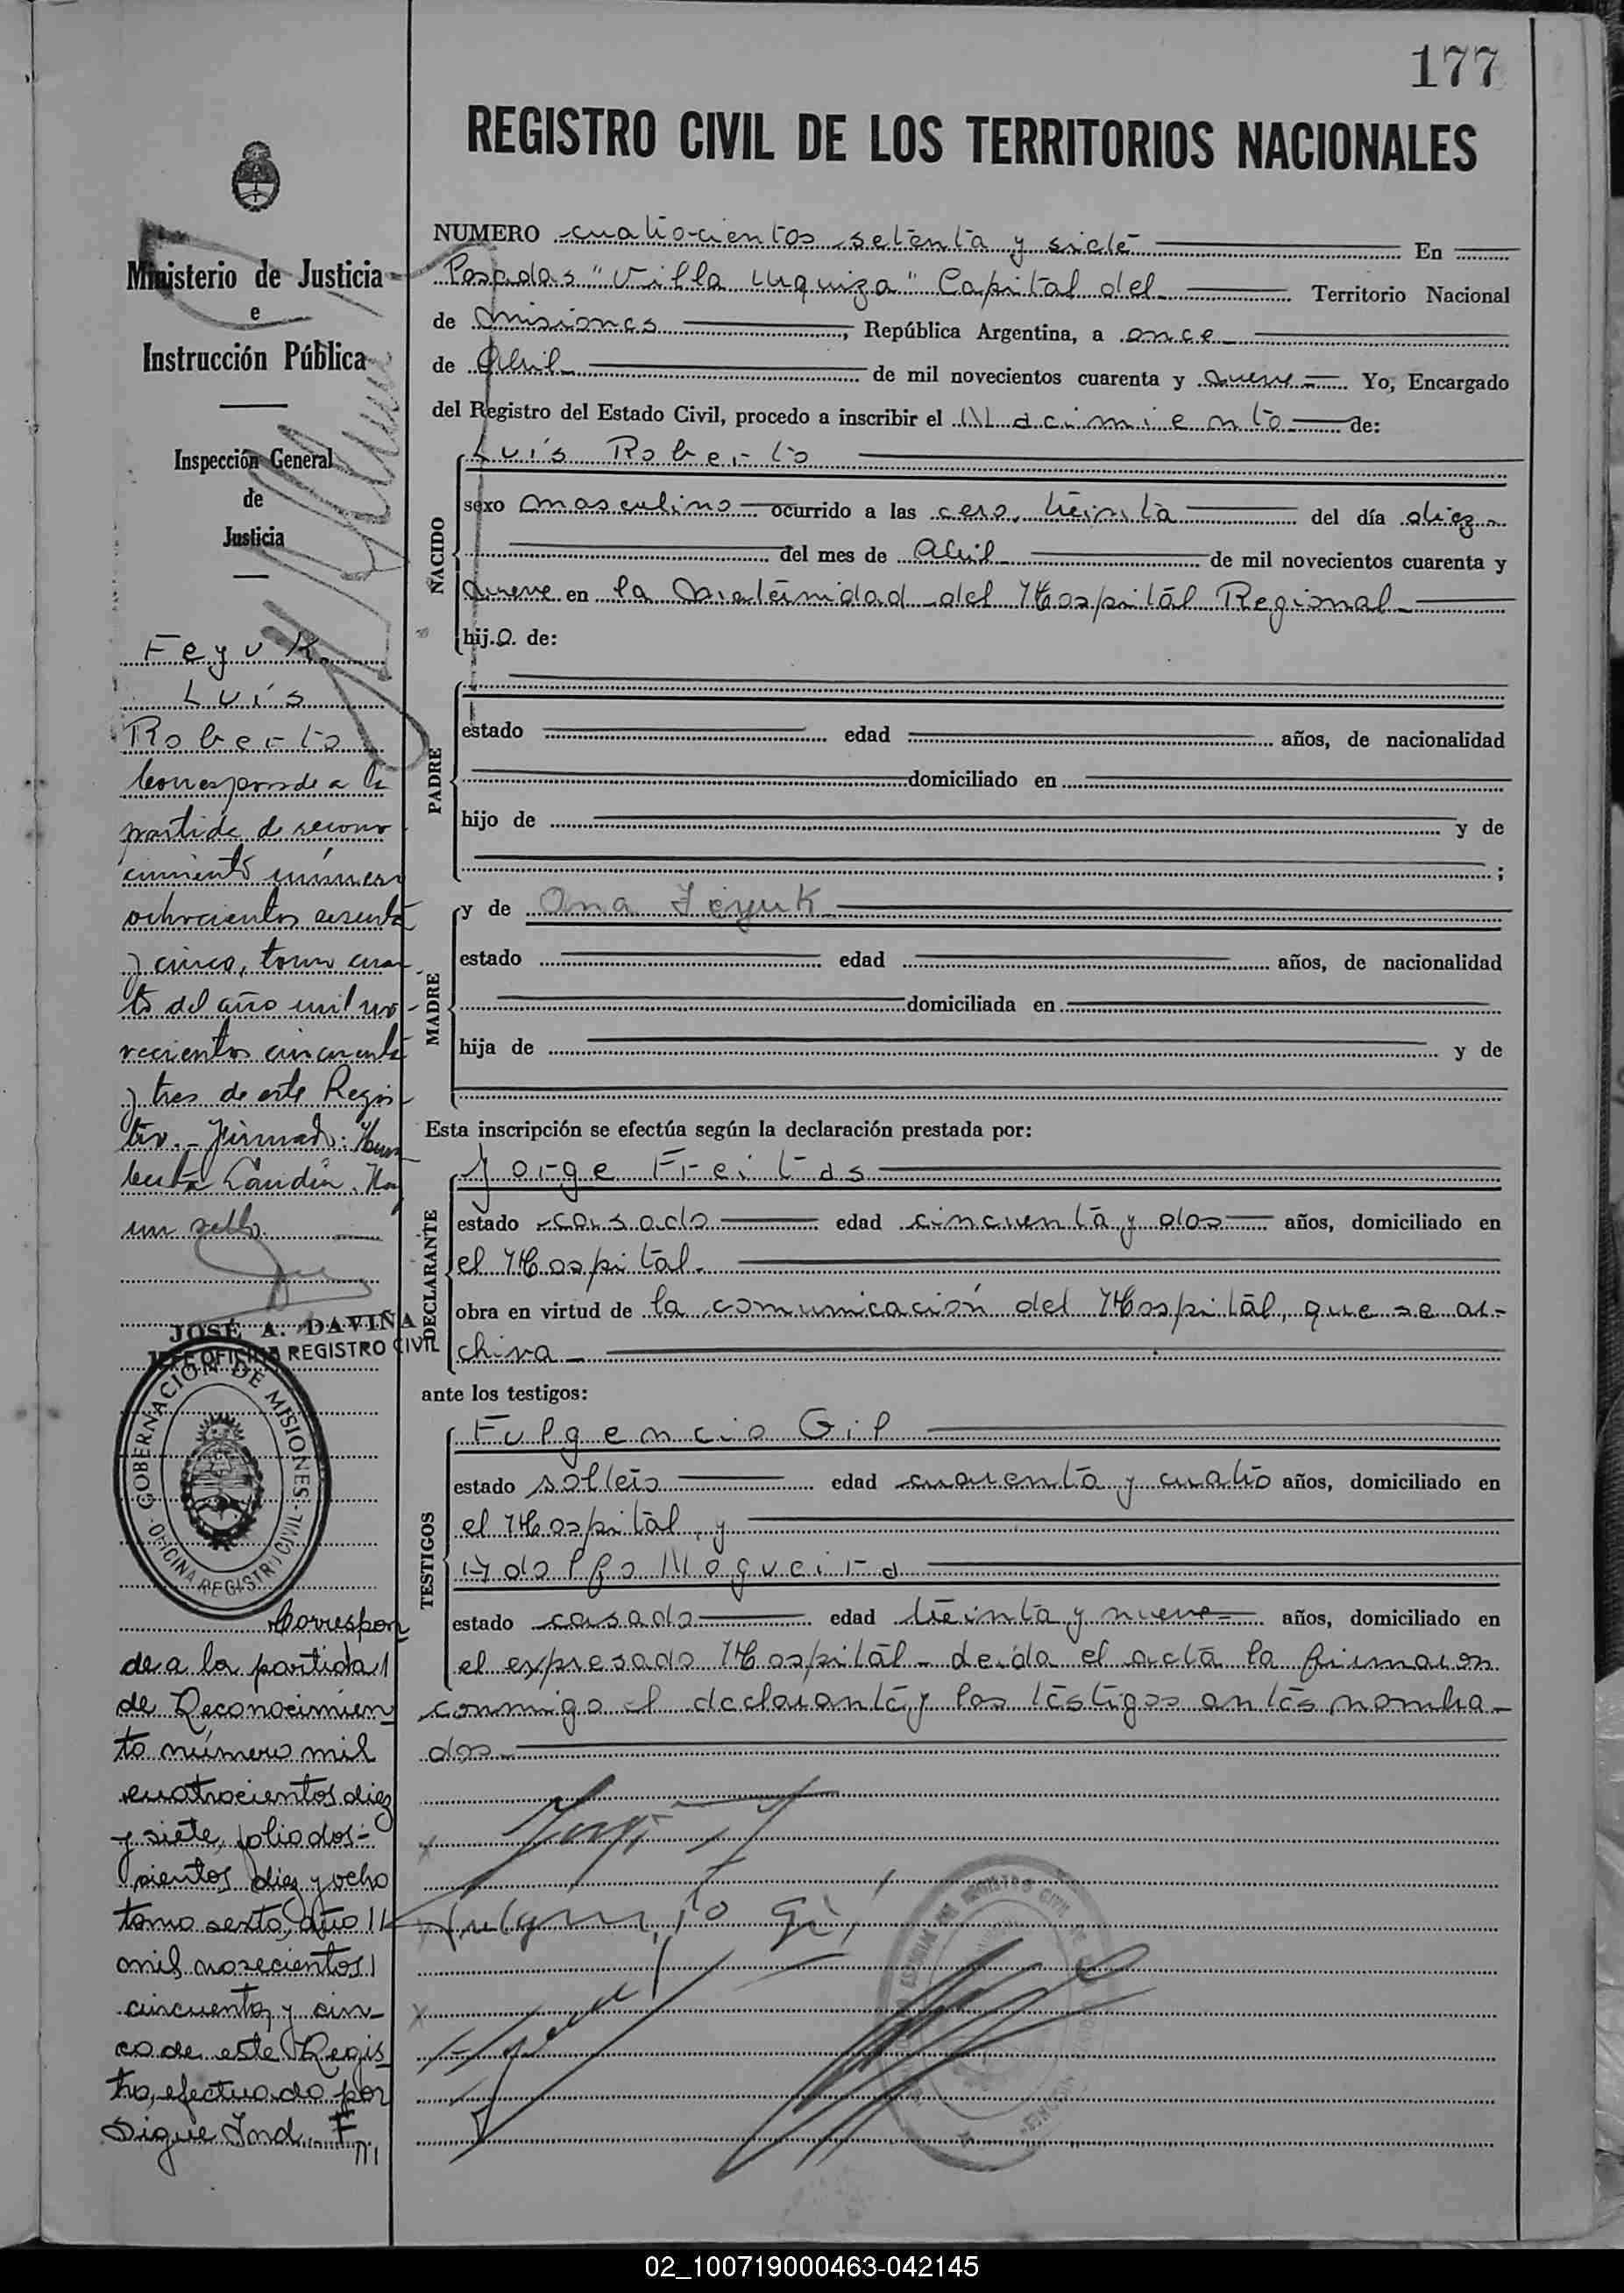 177
REGISTRO CIVIL DE LOS TERRITORIOS NACIONALES
Ministerio de Justicia
e
Instrucción Pública
Inspección General
de
Justicia
Feyuk
Luís
Roberto
Corresponde a la
partida de recono
cimiento número
ochocientos sesenta
y cinco, tomo cuar
to del año mil no-
vecientos cincuenta
y tres de este Regis-
tro.- Firmado: Hum
berto Landin. Hay
un sello
JOSÉ A. DAVIÑA
JEFE OFICINA REGISTRO CIVIL
GOBERNACION DE MISIONES
OFICINA REGISTRO CIVIL
Correspon
de a la partida
de Reconocimien
to número mil
cuatrocientos diez
y siete, folio dos-
cientos diez y ocho
tomo sexto, año
mil novecientos
cincuenta y cin-
co de este Regis
tro, efectuado por
Sigue Ind. F
NUMERO cuatrocientos setenta y siete En
Posadas "Villa Urquiza" Capital del Territorio Nacional
de Misiones, República Argentina, a once
de Abril de mil novecientos cuarenta y nueve Yo, Encargado
del Registro del Estado Civil, procedo a inscribir el Nacimiento de:
NACIDO
Luís Roberto
sexo masculino ocurrido a las cero, treinta del día diez
del mes de Abril de mil novecientos cuarenta y
nueve en la Maternidad del Hospital Regional
hijo de:
PADRE
estado edad años, de nacionalidad
domiciliado en
hijo de y de
;
MADRE
y de Ana Feyuk
estado edad años, de nacionalidad
domiciliada en
hija de y de
Esta inscripción se efectúa según la declaración prestada por:
DECLARANTE
Jorge Freitas
estado casado edad cincuenta y dos años, domiciliado en
el Hospital.
obra en virtud de la comunicación del Hospital, que se ar-
chiva
ante los testigos:
TESTIGOS
Fulgencio Gil
estado soltero edad cuarenta y cuatro años, domiciliado en
el Hospital, y
Adolfo Nogueira
estado casado edad treinta y nueve años, domiciliado en
el expresado Hospital - Leída el acta la firmaron
conmigo el declarante y los testigos antes nombra-
dos
Fulgencio Gil
02_100719000463-042145